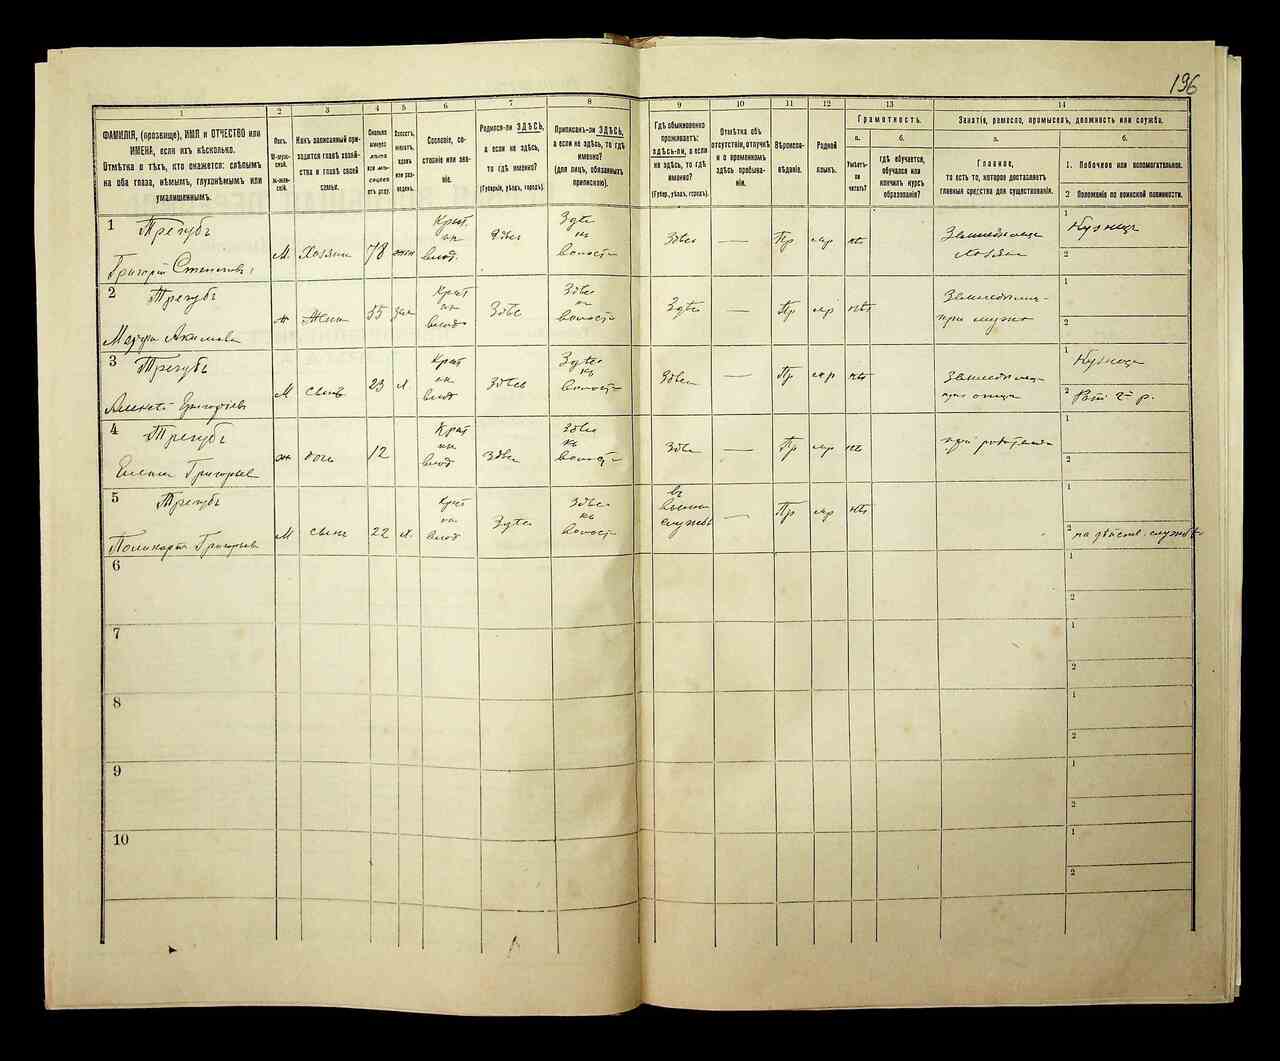 196
1 2 3 4 5 6 7 8 9 10 11 12 13 14
ФАМИЛІЯ, (прозвище), ИМЯ и ОТЧЕСТВО или
ИМЕНА, если ихъ нѣсколько.
Отмѣтка о тѣхъ, кто окажется: слѣпымъ
на оба глаза, нѣмымъ, глухонѣмымъ или
умалишеннымъ.
Полъ.
М-мужской.
Ж-женскій.
Какъ записанный при-
ходится главѣ хозяй-
ства и главѣ своей
семьи.
Сколько
минуло
лѣтъ
или мѣ-
сяцевъ
отъ роду.
Холостъ,
женатъ,
вдовъ
или раз-
веденъ.
Сословіе, со-
стояніе или зва-
ніе.
Родился-ли ЗДѢСЬ,
а если не здѣсь,
то гдѣ именно?
(Губернія, уѣздъ, городъ).
Приписанъ-ли ЗДѢСЬ,
а если не здѣсь, то гдѣ
именно?
(для лицъ, обязанныхъ
припискою).
Гдѣ обыкновенно
проживаетъ:
здѣсь-ли, а если
не здѣсь, то гдѣ
именно?
(Губер., уѣздъ, городъ).
Отмѣтка объ
отсутствіи, отлучкѣ
и о временномъ
здѣсь пребыва-
ніи.
Вѣроиспо-
вѣданіе.
Родной
языкъ.
Грамотность.
а.
Умѣетъ-
ли
читать?
б.
гдѣ обучается,
обучался или
кончилъ курсъ
образованія?
Занятіе, ремесло, промыселъ, должность или служба.
а.
Главное,
то есть то, которое доставляетъ
главныя средства для существованія.
б.
1. Побочное или вспомогательное.
2 Положеніе по воинской повинности.
1 Трегубъ
Григорій Степановъ
м. Хозяинъ 78 жен Крест. из влад. Здѣсь Здѣсь въ волости Здѣсь — Пр мр нѣт Земледѣлецъ хозяинъ
1 Кузнецъ
2
2 Трегубъ
Марфа Акимова
ж Жена 55 зам Крест из влад Здѣсь Здѣсь въ волости Здѣсь — Пр мр нѣт Земледѣлица при мужѣ
1
2
3 Трегубъ
Алексѣй Григорьевъ
м сынъ 23 х Крест из влад Здѣсь Здѣсь въ волости Здѣсь — Пр мр нѣт Земледѣлецъ при отцѣ
1 Кузнецъ
2 Рат. 2 р.
4 Трегубъ
Елена Григорьева
ж дочь 12 Крест из влад Здѣсь Здѣсь въ волости Здѣсь — Пр мр нѣт при родителяхъ
1
2
5 Трегубъ
Поликарпъ Григорьевъ
м сынъ 22 х. Крест из влад Здѣсь Здѣсь въ волости въ военной службѣ — Пр мр нѣт
1
2 на дѣйств. службѣ
6
1
2
7
1
2
8
1
2
9
1
2
10
1
2